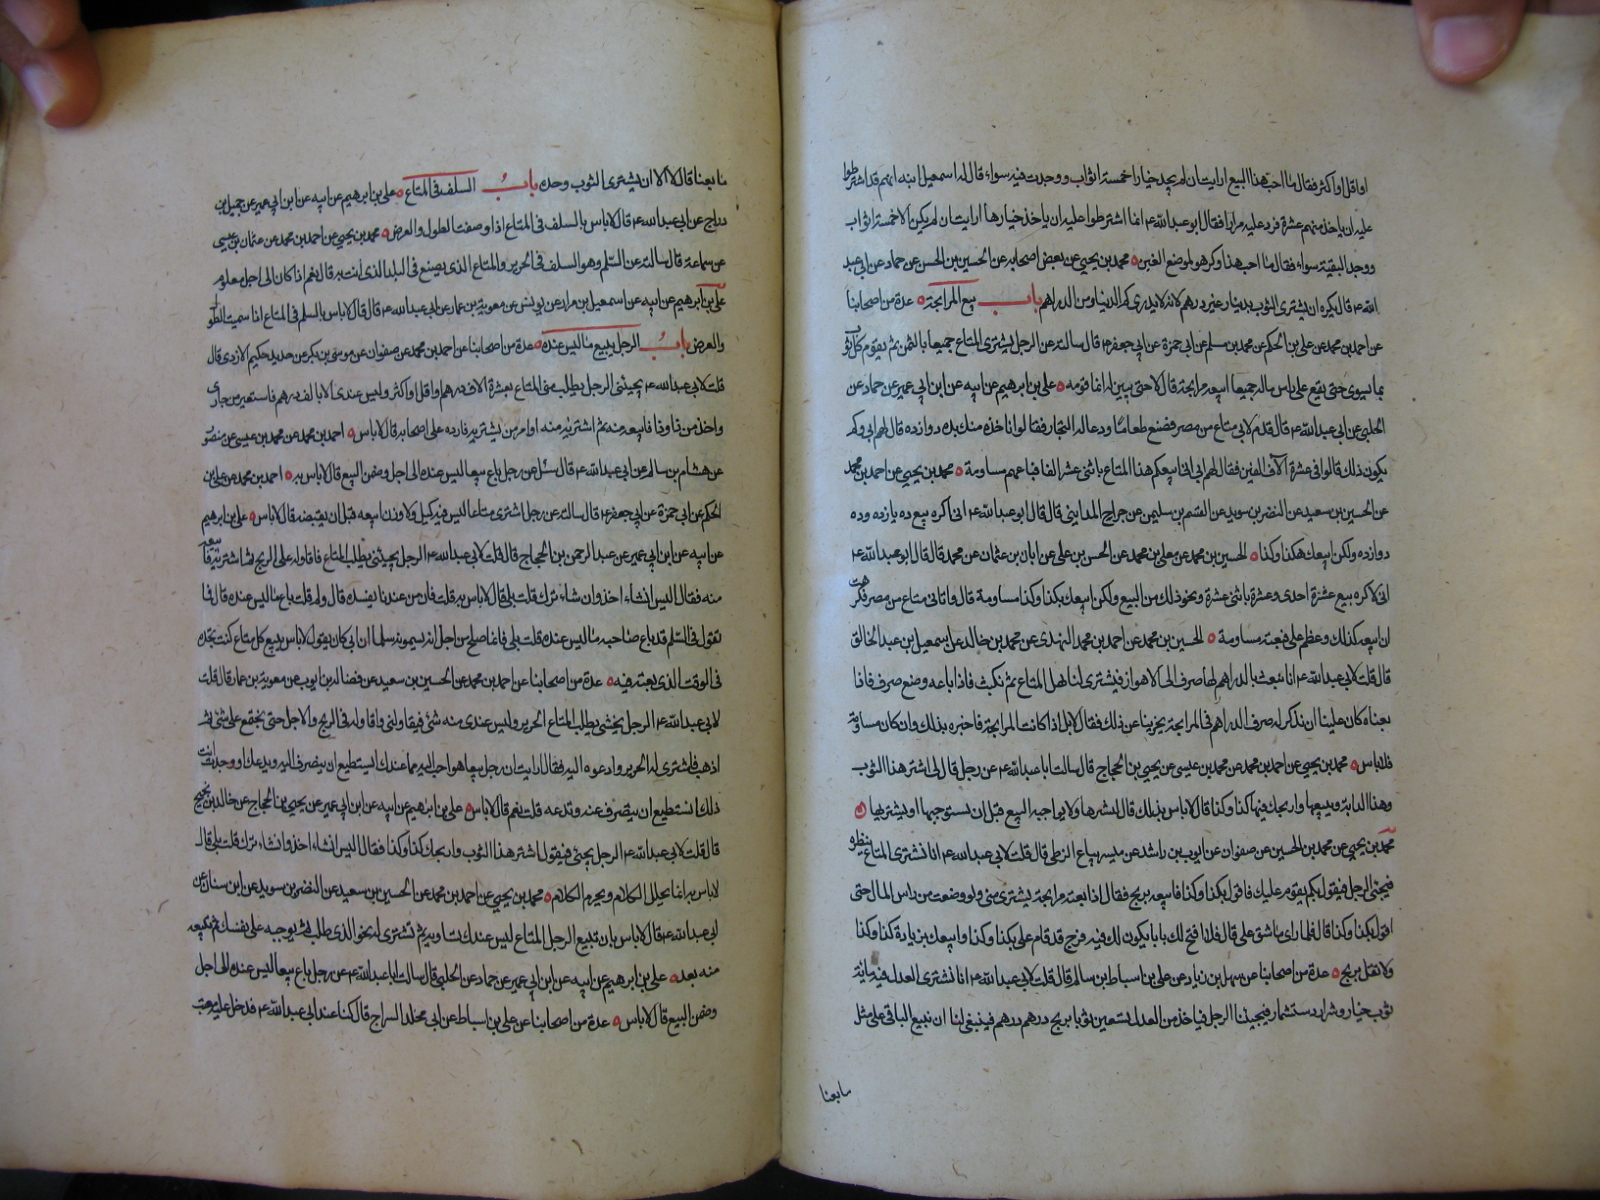 او اقل او اكثر فقال ما احب هذا البيع ارايت ان لم يجد خيارا خمسة اثواب ووجدت فيه سواء قال له اسمعيل ابنه انهم قد اشترطوا
عليه ان ياخذ منهم عشرة فرد عليه مرارا فقال ابو عبد الله ع انما اشترطوا عليه ان ياخذ خيارها ارايت ان لم يكن الا خمسة اثواب
ووجد البقية سواء فقال ما احب هذا وكرهه لموضع الغبن محمد بن يحيى عن بعض اصحابه عن الحسين بن الحسن عن حماد عن ابي عبد
الله ع قال يكره ان يشترى الثوب بدينار غير درهم لانه لا يدرى كم الدينار من الدراهم باب بيع المرابحة عدة من اصحابنا
عن احمد بن محمد عن علي بن الحكم عن محمد بن مسلم عن ابي حمزة عن ابي جعفر ع قال سالته عن الرجل يشترى المتاع جميعا بالثمن ثم يقوم كل ثوب
بما يسوى حتى يقع على راس ماله جميعا ايبيعه مرابحة قال لا حتى يبين له انما قومه علي بن ابرهيم عن ابيه عن ابن ابي عمير عن حماد عن
الحلبي عن ابي عبد الله ع قال قدم لابي متاع من مصر فصنع طعاما ودعا له التجار فقالوا انا خذه منك بده دوازده قال لهم ابي وكم
يكون ذلك قالوا في عشرة آلاف الفين فقال لهم ابي اني ابيعكم هذا المتاع باثنى عشر الفا فباعهم مساومة محمد بن يحيى عن احمد بن محمد
عن الحسين بن سعيد عن النضر بن سويد عن القسم بن سليمن عن جراح المدايني قال قال ابو عبد الله ع اني اكره بيع ده يازده وده
دوازده ولكن ابيعك هكذا وكذا الحسين بن محمد عن معلى بن محمد عن الحسن بن علي عن ابان بن عثمان عن محمد قال قال ابو عبد الله ع
اني لاكره بيع عشرة احدى وعشرة باثنى عشرة ونحو ذلك من البيع ولكن ابيعك بكذا وكذا مساومة قال واتاني متاع من مصر فكرهت
ان ابيعه كذلك وعظم علي فبعته مساومة الحسين بن محمد عن احمد بن محمد النهدى عن محمد بن خالد عن اسمعيل بن عبد الخالق
قال قلت لابي عبد الله ع انا نبعث بالدراهم لها صرف الى الاهواز فيشترى لنا بها المتاع ثم نلبث فاذا باعه وضع صرف فاذا
بعناه كان علينا ان نذكر له صرف الدراهم في المرابحة يجزينا عن ذلك فقال لا بل اذا كانت المرابحة فاخبره بذلك وان كان مساومة
فلا باس محمد بن يحيى عن احمد بن محمد عن محمد بن عيسى عن يحيى بن الحجاج قال سالت ابا عبد الله ع عن رجل قال لي اشتر هذا الثوب
وهذا الدابة وبيعنيها واربحك فيها كذا وكذا قال لا باس بذلك قال ليشترها ولا يواجبه البيع قبل ان يستوجبها او يشتريها
محمد بن يحيى عن محمد بن الحسين عن صفوان عن ايوب بن راشد عن ميسر بياع الزطى قال قلت لابي عبد الله ع انا نشترى المتاع بنظرة
فيجئ الرجل فيقول بكم يقوم عليك فاقول بكذا وكذا فابيعه بربح فقال اذا بعته مرابحة
اقول بكذا وكذا قال فلما راى ما شق علي قال افلا افتح لك بابا يكون لك فيه فرج قد قام علي بكذا وكذا وابيعك بزيادة كذا وكذا
ولا تقل بربح عدة من اصحابنا عن سهل بن زياد عن علي بن اسباط بن سالم قال قلت لابي عبد الله ع انا نشترى العدل فيه مائة
ثوب خيار وشرار دستشمار فيجيئنا الرجل فياخذ من العدل تسعين ثوبا بربح درهم درهم فينبغي لنا ان نبيع الباقي على مثل
ما بعنا
ما بعنا قال لا الا ان يشترى الثوب وحده باب السلف في المتاع علي بن ابرهيم عن ابيه عن ابن ابي عمير عن جميل بن
دراج عن ابي عبد الله ع قال لا باس بالسلف في المتاع اذا وصفت الطول والعرض محمد بن يحيى عن احمد بن محمد عن عثمان بن عيسى
عن سماعة قال سالته عن السلم وهو السلف في الحرير والمتاع الذى يصنع في البلد الذى انت به قال نعم اذا كان الى اجل معلوم
علي بن ابرهيم عن ابيه عن اسمعيل بن مرار عن يونس عن معوية بن عمار عن ابي عبد الله ع قال قال لا باس بالسلم في المتاع اذا سميت الطول
والعرض باب الرجل يبيع ما ليس عنده عدة من اصحابنا عن احمد بن محمد عن صفوان عن موسى بن بكر عن حديد حكيم الازدى قال
قلت لابي عبد الله ع يجيئني الرجل يطلب مني المتاع بعشرة الاف درهم او اقل او اكثر وليس عندى الا بالف درهم فاستعير من جارى
واخذ من ذا وذا فابيعه منه ثم اشتريه منه او امر من يشتريه فارده على اصحابه قال لا باس احمد بن محمد عن محمد بن عيسى عن منصور
عن هشام بن سالم عن ابي عبد الله ع قال سئل عن رجل باع بيعا ليس عنده الى اجل وضمن البيع قال لا باس به احمد بن محمد عن علي بن
الحكم عن ابي حمزة عن ابي جعفر ع قال سالته عن رجل اشترى متاعا ليس فيه كيل ولا وزن ايبيعه قبل ان يقبضه قال لا باس علي بن ابرهيم
عن ابيه عن ابن ابي عمير عن عبد الرحمن بن الحجاج قال قلت لابي عبد الله ع الرجل يجيئني يطلب المتاع فاقاوله على الربح ثم اشتريه فابيعه
منه فقال اليس ان شاء اخذ وان شاء ترك قلت بلى قال لا باس به قلت فان من عندنا يفسده قال ولم قلت باع ما ليس عنده قال فما
تقول في السلم قد باع صاحبه ما ليس عنده قلت بلى قال فانما صلح من اجل انه يسمونه سلما ان ابي كان يقول لا باس ببيع كل متاع كنت تجده
في الوقت الذى بعته فيه عدة من اصحابنا عن احمد بن محمد عن الحسين بن سعيد عن فضالة بن ايوب عن معوية بن عمار قال قلت
لابي عبد الله ع الرجل يجيئني يطلب المتاع الحرير وليس عندى منه شئ فيقاولني واقاوله في الربح والاجل حتى نجتمع على شئ ثم
اذهب فاشترى له الحرير وادعوه اليه فقال ارايت ان وجد بيعا هو احب اليه مما عندك ايستطيع ان ينصرف اليه ويدعك او وجدت انت
ذلك اتستطيع ان تنصرف عنه وتدعه قلت نعم قال لا باس علي بن ابرهيم عن ابيه عن ابن ابي عمير عن يحيى بن الحجاج عن خالد بن نجيح
قال قلت لابي عبد الله ع الرجل يجئ فيقول اشتر هذا الثوب واربحك كذا وكذا فقال اليس ان شاء اخذ وان شاء ترك قلت بلى قال
لا باس به انما يحلل الكلام ويحرم الكلام محمد بن يحيى عن احمد بن محمد عن الحسين بن سعيد عن النضر بن سويد عن ابن سنان عن
ابي عبد الله ع قال لا باس بان تبيع الرجل المتاع ليس عندك تساومه ثم تشترى له نحو الذى طلب ثم توجبه على نفسك ثم تبيعه
منه بعده علي بن ابرهيم عن ابيه عن ابن ابي عمير عن حماد عن الحلبي قال سالت ابا عبد الله ع عن رجل باع بيعا ليس عنده الى اجل
وضمن البيع قال لا باس عدة من اصحابنا عن علي بن اسباط عن ابي مخلد السراج قال كنا عند ابي عبد الله ع فدخل عليه معتب